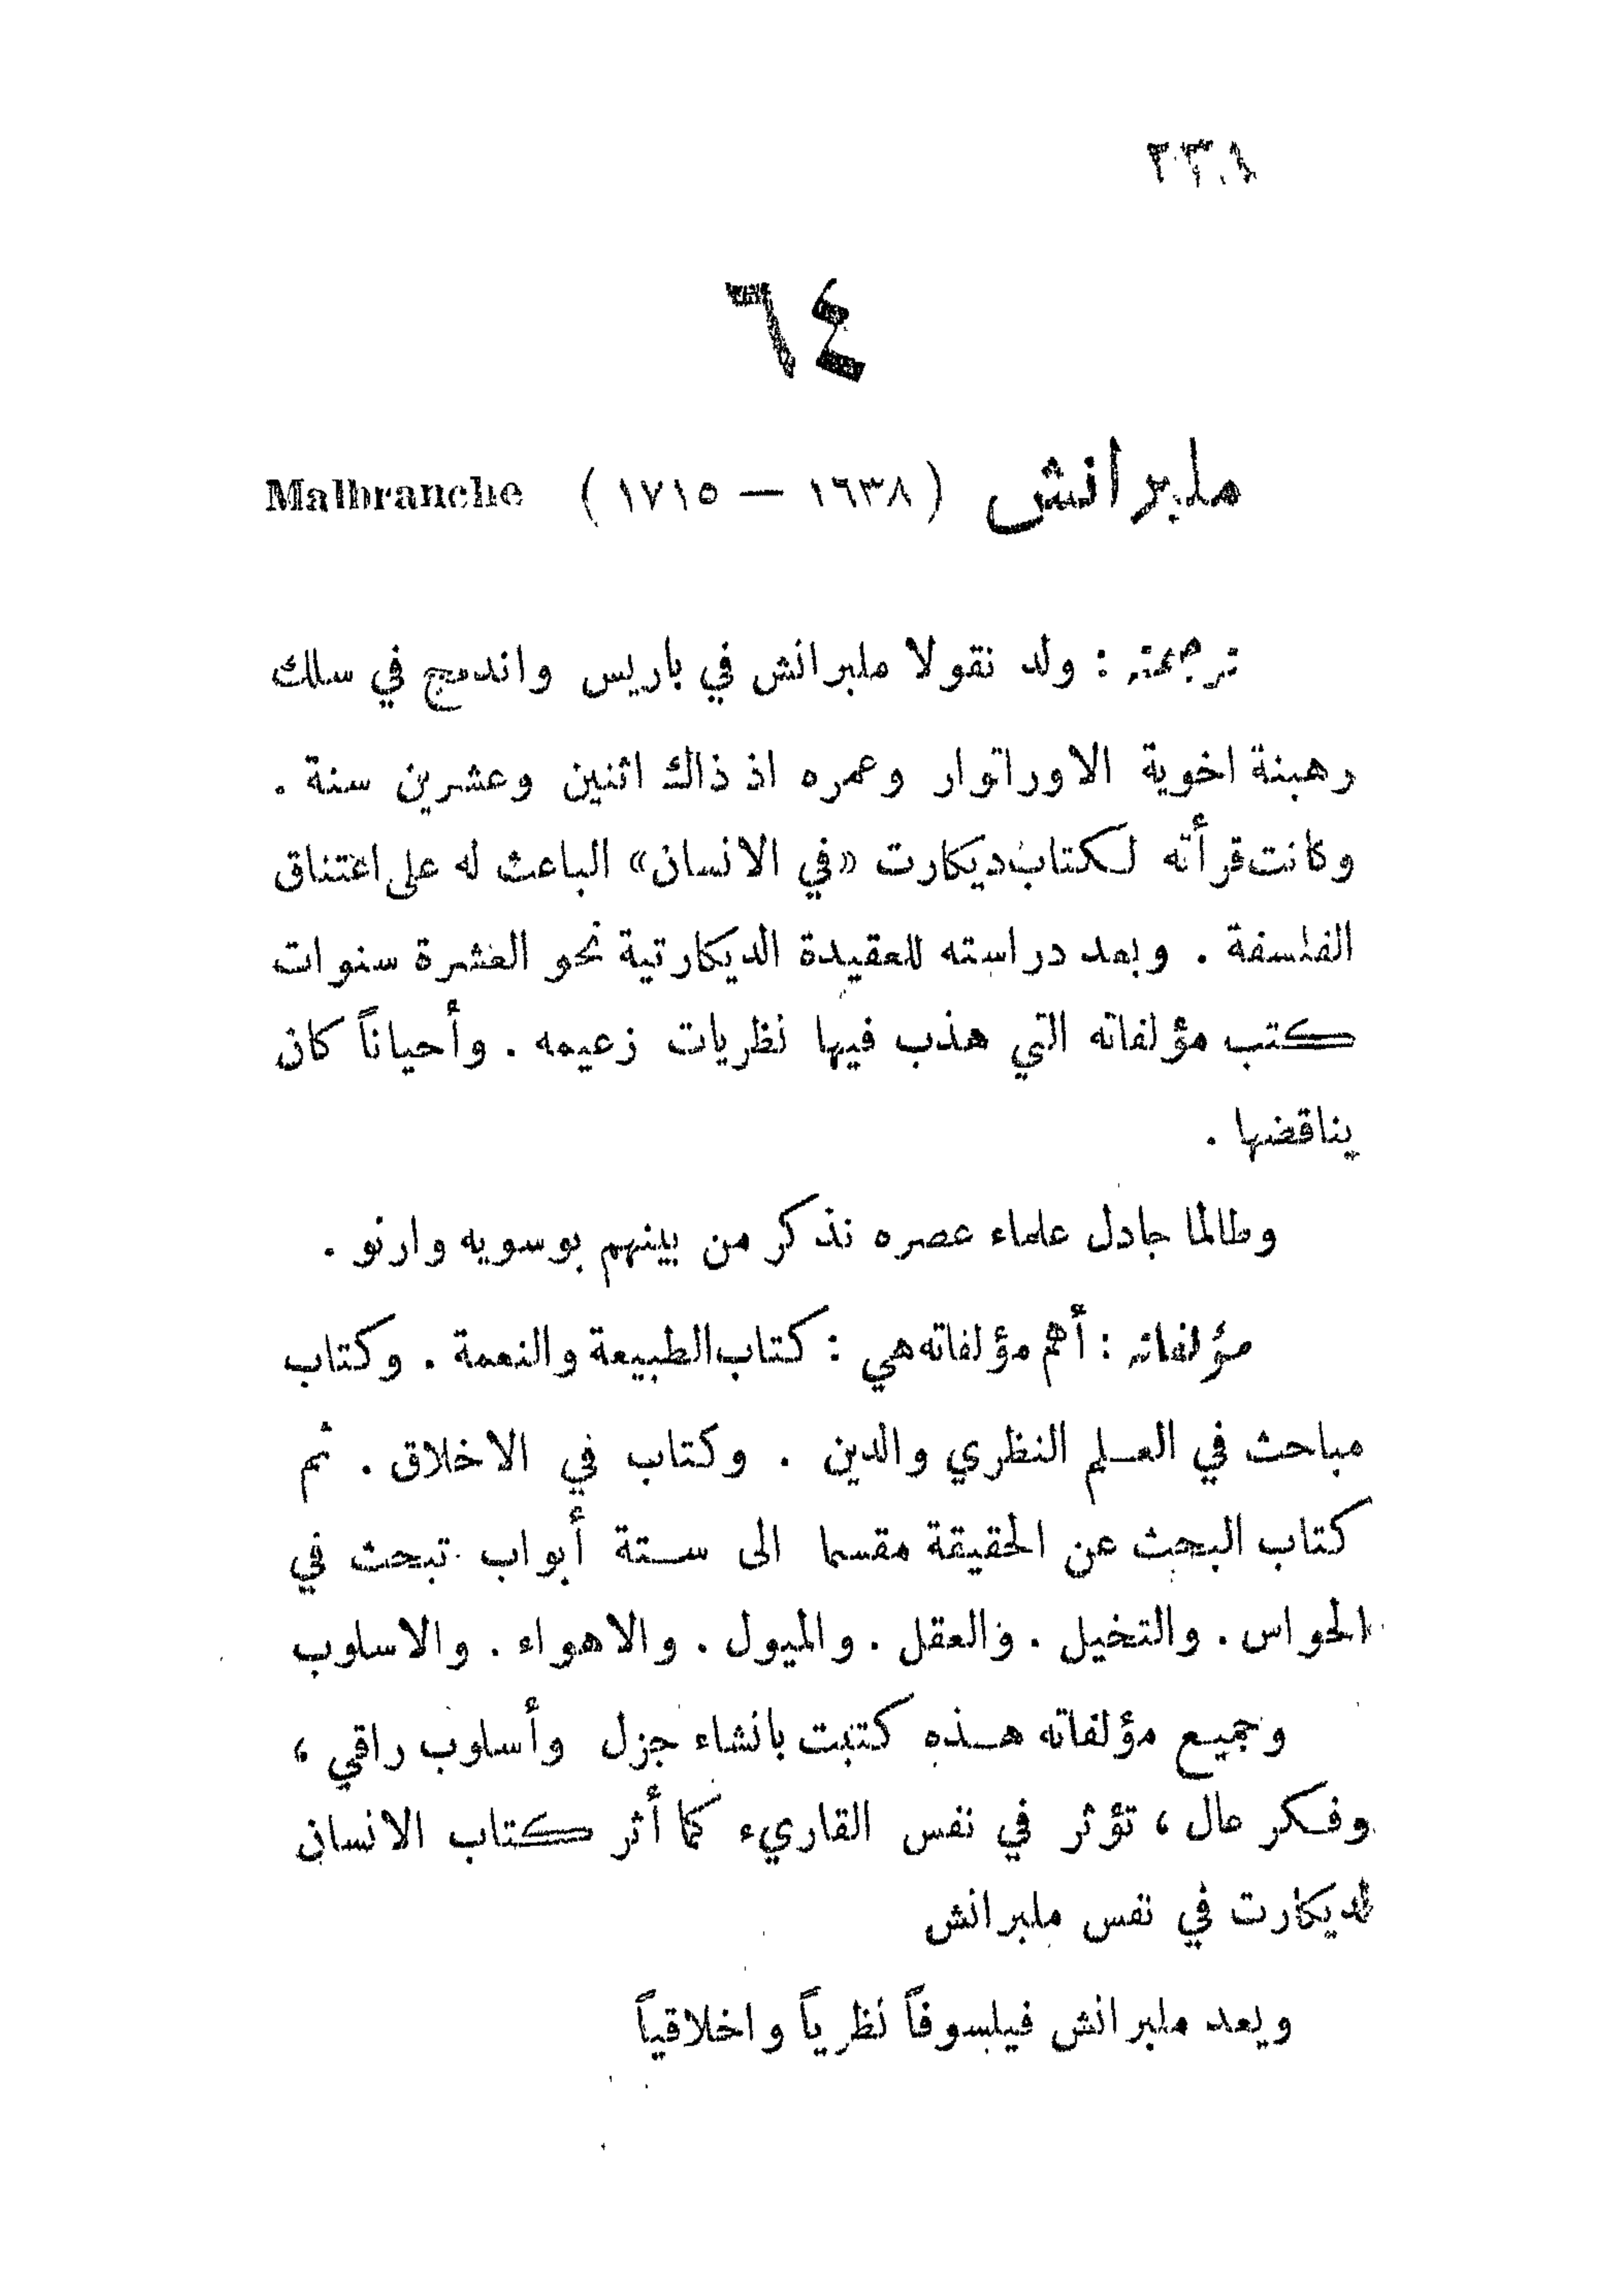 ٢٣٨
٦٤
ملبرانش ( ١٦٣٨ — ١٧١٥ ) Malbranche
ترجمته : ولد نقولا ملبرانش في باريس واندمج في سلك
رهبنة اخوية الاوراتوار وعمره اذ ذاك اثنين وعشرين سنة .
وكانت قرأته لكتاب ديكارت «في الانسان» الباعث له على اعتناق
الفلسفة . وبعد دراسته للعقيدة الديكارتية نحو العشرة سنوات
كتب مؤلفاته التي هذب فيها نظريات زعيمه . وأحياناً كان
يناقضها .
وطالما جادل علماء عصره نذكر من بينهم بوسويه وارنو .
مؤلفاته : أهم مؤلفاته هي : كتاب الطبيعة والنعمة . وكتاب
مباحث في العلم النظري والدين . وكتاب في الاخلاق . ثم
كتاب البحث عن الحقيقة مقسما الى ستة أبواب تبحث في
الحواس . والتخيل . والعقل . والميول . والاهواء . والاسلوب
وجميع مؤلفاته هذه كتبت بانشاء جزل وأسلوب راقي ،
وفكر عال ، تؤثر في نفس القاريء كما أثر كتاب الانسان
لديكارت في نفس ملبرانش
ويعد ملبرانش فيلسوفاً نظرياً واخلاقياً